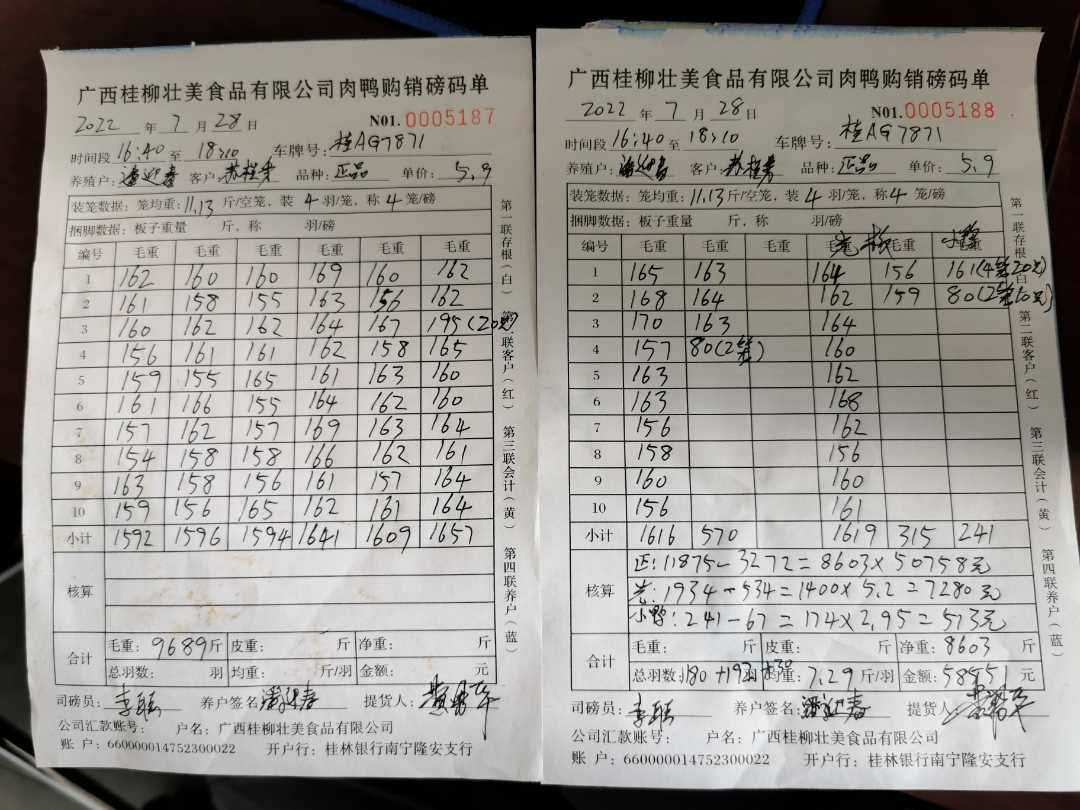 广西桂柳壮美食品有限公司肉鸭购销磅码单
2022 年 7 月 28 日 N01. 0005187
时间段 16:40 至 18:10 车牌号: 桂AG7871
养殖户: 潘迎春 客户 品种: 正品 单价: 5.9
装笼数据: 笼均重: 11.13 斤/空笼, 装 4 羽/笼, 称 4 笼/磅
捆脚数据: 板子重量 斤, 称 羽/磅
编号 毛重 毛重 毛重 毛重 毛重 毛重
1 162 160 160 169 160 162
2 161 158 155 163 156 162
3 160 162 162 164 167 195(20只)
4 156 161 161 162 158 165
5 159 155 165 161 163 160
6 161 166 155 164 162 160
7 157 162 157 169 163 164
8 154 158 158 166 162 161
9 163 158 156 161 157 164
10 159 156 165 162 161 164
小计 1592 1596 1594 1641 1609 1657
核算
合计
毛重: 9689斤 皮重: 斤 净重: 斤
总羽数: 羽 均重: 斤/羽 金额: 元
司磅员: 养户签名: 潘迎春 提货人:
公司汇款账号: 户名: 广西桂柳壮美食品有限公司
账 户: 660000014752300022 开户行: 桂林银行南宁隆安支行
第一联存根(白) 第二联客户(红) 第三联会计(黄) 第四联养户(蓝)
广西桂柳壮美食品有限公司肉鸭购销磅码单
2022 年 7 月 28 日 N01. 0005188
时间段 16:40 至 18:10 车牌号: 桂AG7871
养殖户: 潘迎春 客户: 品种: 正品 单价: 5.9
装笼数据: 笼均重: 11.13 斤/空笼, 装 4 羽/笼, 称 4 笼/磅
捆脚数据: 板子重量 斤, 称 羽/磅
编号 毛重 毛重 毛重 毛重 毛重 毛重
1 165 163 164 156 161(4笼20只)
2 168 164 162 159 80(2笼10只)
3 170 163 164
4 157 80(2笼) 160
5 163 162
6 163 168
7 156 162
8 158 156
9 160 160
10 156 161
小计 1616 570 1619 315 241
核算
正: 11875-3272=8603×50758元
1934-534=1400×5.2=7280元
小鸭: 241-67=174×2.95=513元
合计
毛重: 斤 皮重: 斤 净重: 8603 斤
总羽数: 均重: 7.29 斤/羽 金额: 58551 元
司磅员: 养户签名: 潘迎春 提货人:
公司汇款账号: 户名: 广西桂柳壮美食品有限公司
账 户: 660000014752300022 开户行: 桂林银行南宁隆安支行
第一联存根(白) 第二联客户(红) 第三联会计(黄) 第四联养户(蓝)